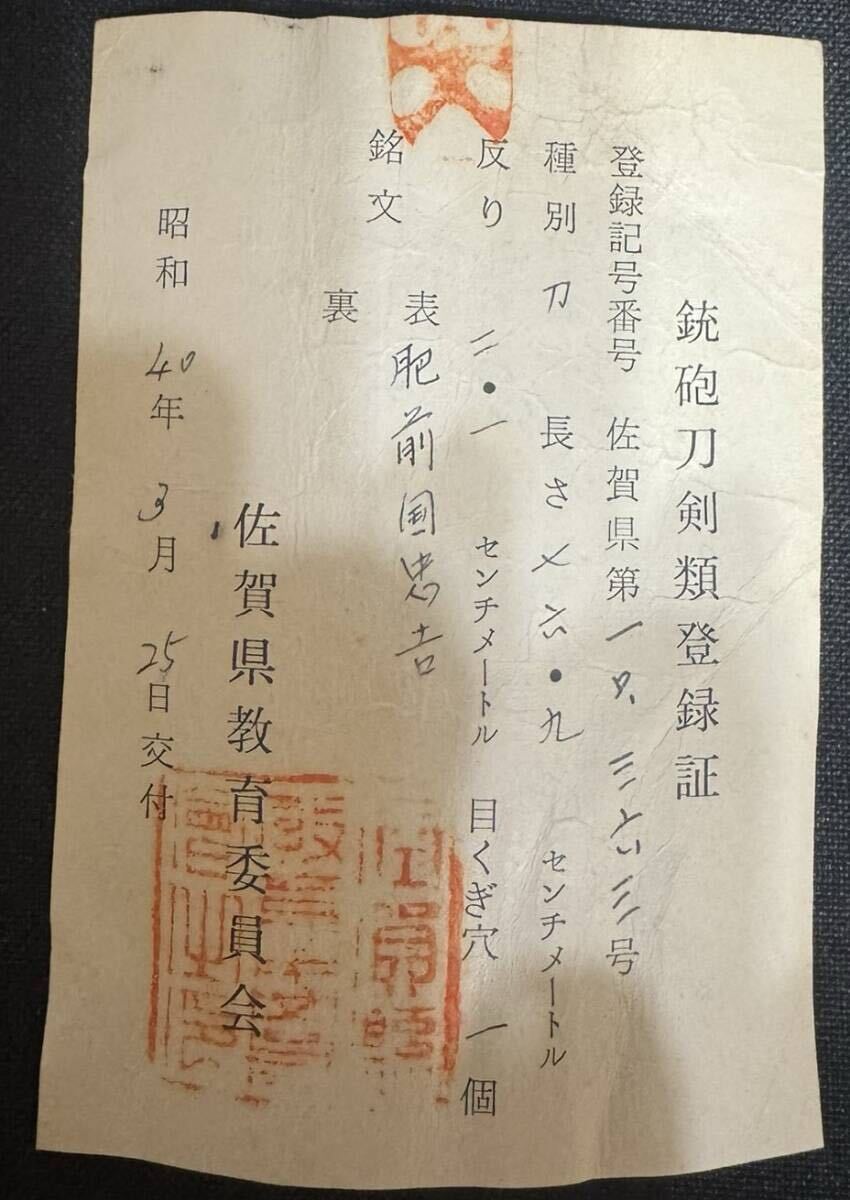 銃砲刀剣類登録証
登録記号番号 佐賀県第一 三六三号
種別 刀 長さ 七六・九 センチメートル
反り 二・一 センチメートル 目くぎ穴 一個
銘文 表 肥前国忠吉
裏
佐賀県教育委員会
昭和 40年 3月 25日交付